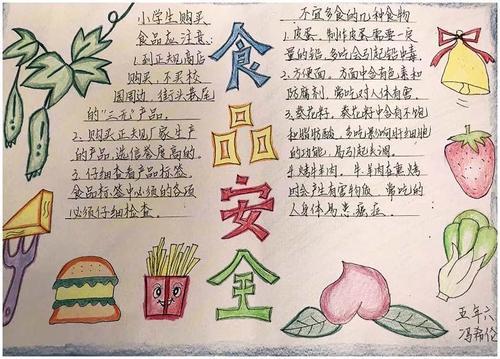 小学生购买
食品应注意:
1.到正规商店
购买,不买校
园周边、街头巷尾
的"三无"产品。
2、购买正规厂家生产
的产品,选信誉度高的。
3、仔细查看产品标签,
食品标签中必须的各项
必须仔细检查。
食品安全
不宜多食的几种食物
1、皮蛋,制作皮蛋需要一定
量的铅,多吃会引起铅中毒。
2、方便面,方面中含有色素和
防腐剂,常吃对人体有害。
3、葵花籽,葵花籽中含有不饱
和脂肪酸,多吃影响肝细胞
的功能,易引起失调。
4、烤牛羊肉,牛、羊肉在熏烤
时会产生有害物质,常吃的
人身体易患癌症。
五年六
冯